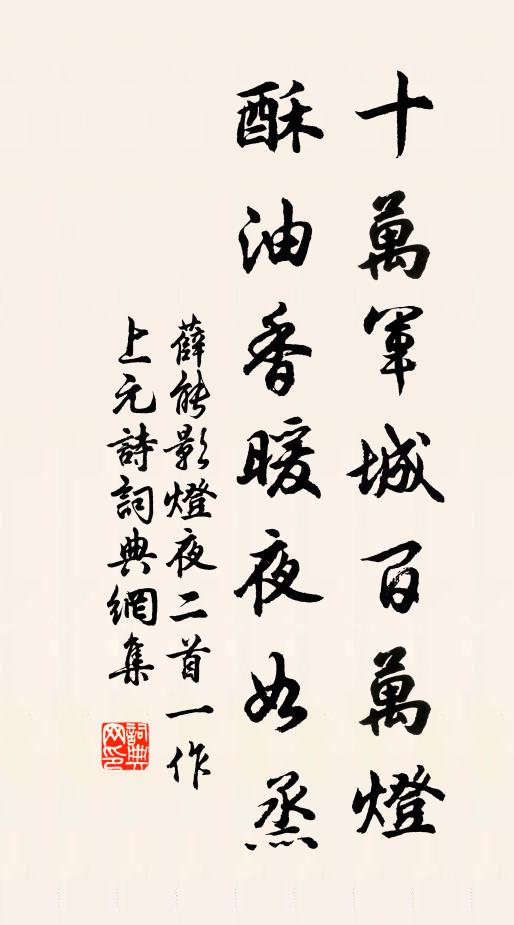 十萬軍城百萬燈
酥油香暖夜如烝
薛能影燈夜二首一作
上元詩詞典網集
詞典网印